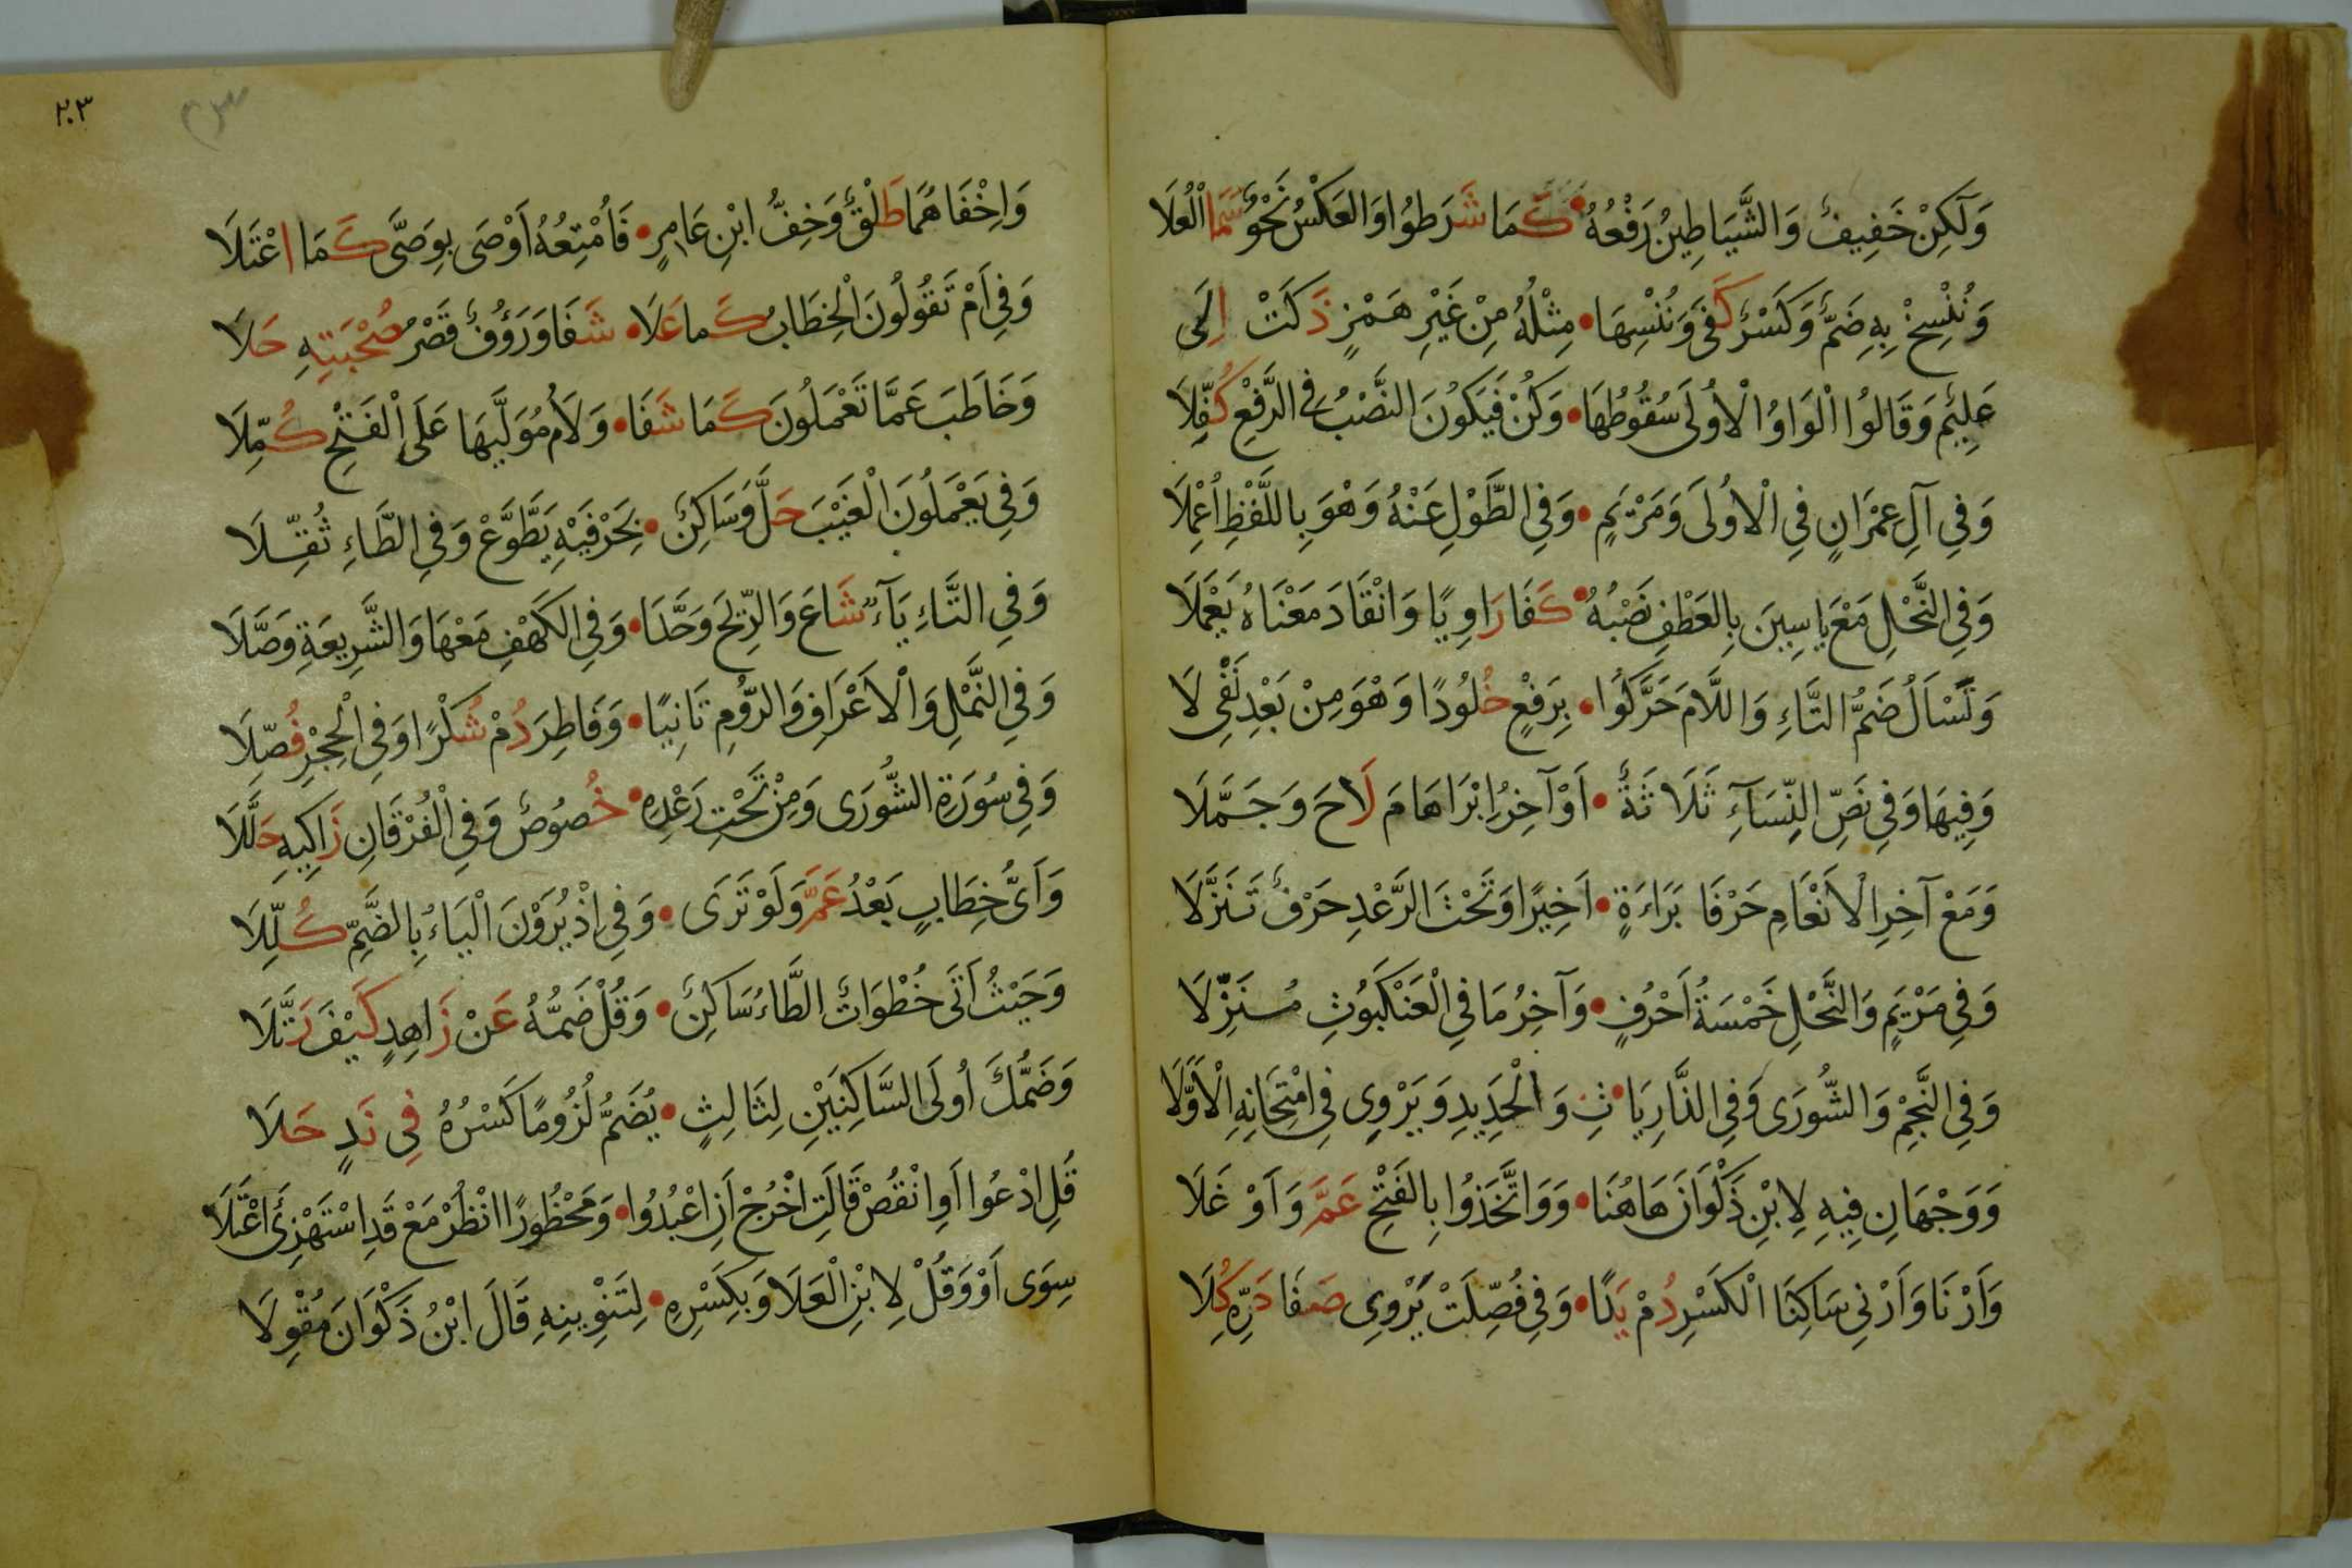 وَلَكِنْ خَفِيفٌ وَالشَّيَاطِينُ رَفْعُهُ • كَمَا شَرَطُوا وَالعَكْسُ نَحْوٌ سَمَا الْعُلَا
وَنُنْسِخْ بِهِ ضَمٌّ وَكَسْرٌ كَفَى وَنُنْسِهَا • مِثْلُهُ مِنْ غَيْرِ هَمْزٍ ذَكَتْ إِلَى
عَلِيمٌ وَقَالُوا الْوَاوُ الْأُولَى سُقُوطُهَا • وَكُنْ فَيَكُونَ النَّصْبُ فِي الرَّفْعِ كُفِّلَا
وَفِي آلِ عِمْرَانٍ فِي الْأُولَى وَمَرْيَمٍ • وَفِي الطَّوْلِ عَنْهُ وَهْوَ بِاللَّفْظِ أُعْمِلَا
وَفِي النَّحْلِ مَعْ يَاسِينَ بِالعَطْفِ نَصْبُهُ • كَفَا رَاوِيًا وَانْقَادَ مَعْنَاهُ يَعْمَلَا
وَتَسْأَلُ ضَمُّ التَّاءِ وَاللَّامَ حَرَّكُوا • بِرَفْعٍ خُلُودًا وَهْوَ مِنْ بَعْدِ نَفْيِ لَا
وَفِيهَا وَفِي نَصِّ النِّسَآءِ ثَلَاثَةٌ • أَوْآخِرُ إِبْرَاهَامَ لَاحَ وَجَمَّلَا
وَمَعْ آخِرِ الْأَنْعَامِ حَرْفَا بَرَاءَةٍ • أَخِيرًا وَتَحْتَ الرَّعْدِ حَرْفٌ تَنَزَّلَا
وَفِي مَرْيَمٍ وَالنَّحْلِ خَمْسَةُ أَحْرُفٍ • وَآخِرُ مَا فِي الْعَنْكَبُوتِ مُنَزَّلَا
وَفِي النَّجْمِ وَالشُّورَى وَفِي الذَّارِيَا • تِ وَالْحَدِيدِ وَيَرْوِي فِي امْتِحَانِهِ الْأَوَّلَا
وَوَجْهَانِ فِيهِ لِابْنِ ذَكْوَانَ هَاهُنَا • وَوَاتَّخَذُوا بِالفَتْحِ عَمَّ وَأَوْغَلَا
وَأَرْنَا وَأَرْنِي سَاكِنَا الْكَسْرِ دُمْ يَدًا • وَفِي فُصِّلَتْ يَرْوِي صَفَا دَرِّهِ كُلَا
٢٠٣
وَإِخْفَاهُمَا طَلْقٌ وَخِفُّ ابْنِ عَامِرٍ • فَأُمْتِعُهُ أَوْصَى بِوَصَّى كَمَا اعْتَلَا
وَفِي أَمْ تَقُولُونَ الْخِطَابُ كَمَا عَلَا • شَفَا وَرَؤُفٌ قَصْرُ صُحْبَتِهِ حَلَا
وَخَاطَبَ عَمَّا تَعْمَلُونَ كَمَا شَفَا • وَلَامُ مُوَلَّيهَا عَلَى الْفَتْحِ كُمِّلَا
وَفِي يَعْمَلُونَ الْغَيْبَ حَلَّ وَسَاكِنٌ • بِحَرْفَيْهِ يَطَّوَّعْ وَفِي الطَّاءِ ثُقِّلَا
وَفِي التَّاءِ يَآءٌ شَاعَ وَالرِّيحَ وَحَّدَا • وَفِي الكَهْفِ مَعْهَا وَالشَّرِيعَةِ وَصَّلَا
وَفِي النَّمْلِ وَالْأَعْرَافِ وَالرُّومِ ثَانِيًا • وَفَاطِرَ دُمْ شُكْرًا وَفِي الْحِجْرِ فُصِّلَا
وَفِي سُورَةِ الشُّورَى وَمِنْ تَحْتِ رَعْدِهِ • خُصُوصٌ وَفِي الْفُرْقَانِ زَاكِيهِ حَلَّلَا
وَأَيُّ خِطَابٍ بَعْدُ عَمَّ وَلَوْ تَرَى • وَفِي إِذْ يُرَوْنَ الْيَاءُ بِالضَّمِّ كُلِّلَا
وَحَيْثُ أَتَى خُطْوَاتٌ الطَّاءُ سَاكِنٌ • وَقُلْ ضَمُّهُ عَنْ زَاهِدٍ كَيْفَ رَتَّلَا
وَضَمُّكَ أُولَى السَّاكِنَيْنِ لِثَالِثٍ • يُضَمُّ لُزُومًا كَسْرُهُ فِي نَدٍ حَلَا
قُلِ ادْعُوا أَوِ انْقُصْ قَالَتِ اخْرُجْ أَنِ اعْبُدُوا • وَمَحْظُورًا انْظُرْ مَعْ قَدِ اسْتَهْزِئَ اعْتَلَا
سِوَى أَوْ وَقُلْ لِابْنِ الْعَلَا وَبِكَسْرِهِ • لِتَنْوِينِهِ قَالَ ابْنُ ذَكْوَانَ مُقْوِلَا